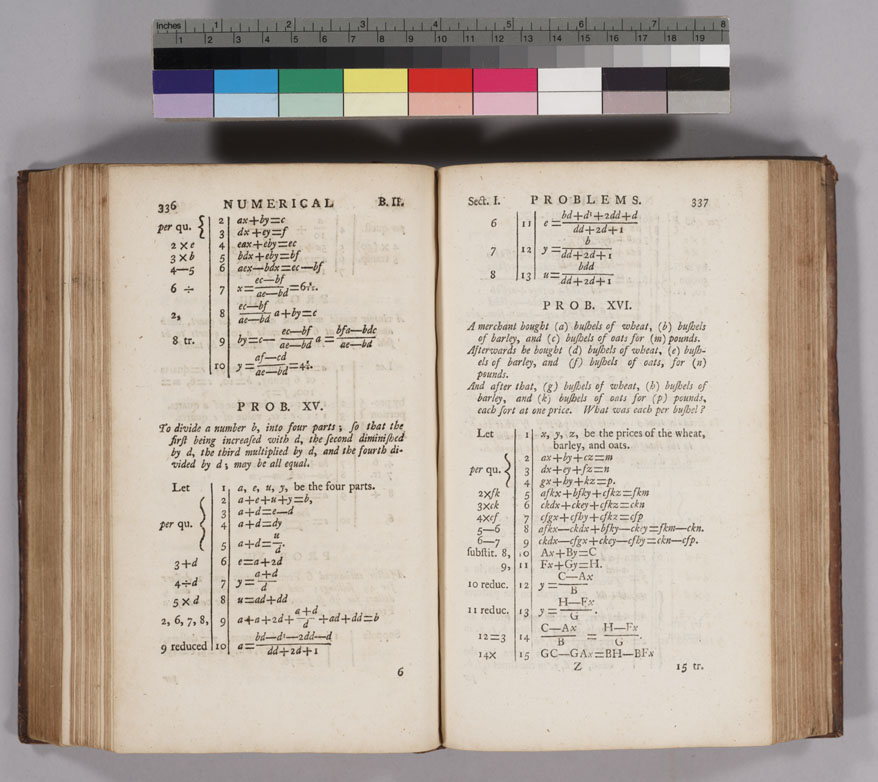 Inches 1 2 3 4 5 6 7 8
1 2 3 4 5 6 7 8 9 10 11 12 13 14 15 16 17 18 19
336 NUMERICAL B. II.
per qu. { 2 ax+by=c
3 dx+ey=f
2 × e 4 eax+eby=ec
3 × b 5 bdx+eby=bf
4—5 6 aex—bdx=ec—bf
6 ÷ 7 x=ec—bf/ae—bd=
2, 8 ec—bf/ae—bd a+by=c
8 tr. 9 by=c— ec—bf/ae—bd a= bfa—bdc/ae—bd
10 y=af—cd/ae—bd=
PROB. XV.
To divide a number b, into four parts; ſo that the
firſt being increaſed with d, the ſecond diminiſhed
by d, the third multiplied by d, and the fourth di-
vided by d; may be all equal.
Let 1 a, e, u, y, be the four parts.
per qu. { 2 a+e+u+y=b,
3 a+d=e—d
4 a+d=dy
5 a+d=u/d.
3+d 6 e=a+2d
4÷d 7 y=a+d/d
5 × d 8 u=ad+dd
2, 6, 7, 8, 9 a+a+2d+ a+d/d +ad+dd=b
9 reduced 10 a= bd—d³—2dd—d/dd+2d+1
6
Sect. I. PROBLEMS. 337
6 11 e= bd+d³+2dd+d/dd+2d+1
7 12 y= b/dd+2d+1
8 13 u= bdd/dd+2d+1
PROB. XVI.
A merchant bought (a) buſhels of wheat, (b) buſhels
of barley, and (c) buſhels of oats for (m) pounds.
Afterwards he bought (d) buſhels of wheat, (e) buſh-
els of barley, and (f) buſhels of oats, for (n)
pounds.
And after that, (g) buſhels of wheat, (h) buſhels of
barley, and (k) buſhels of oats for (p) pounds,
each ſort at one price. What was each per buſhel?
Let 1 x, y, z, be the prices of the wheat,
barley, and oats.
per qu. { 2 ax+by+cz=m
3 dx+ey+fz=n
4 gx+hy+kz=p.
2×fk 5 afkx+bfky+cfkz=fkm
3×ck 6 ckdx+ckey+cfkz=ckn
4×cf 7 cfgx+cfhy+cfkz=cfp
5—6 8 afkx—ckdx+bfky—ckey=fkm—ckn.
6—7 9 ckdx—cfgx+ckey—cfhy=ckn—cfp.
ſubſtit. 8, 10 Ax+By=C
9, 11 Fx+Gy=H.
10 reduc. 12 y= C—Ax/B
11 reduc. 13 y= H—Fx/G.
12=3 14 C—Ax/B = H—Fx/G.
14× 15 GC—GAx=BH—BFx
Z 15 tr.